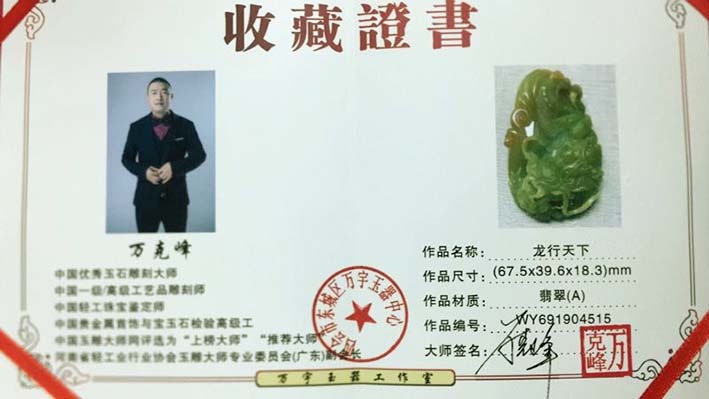 收藏證書
万克峰
中国优秀玉石雕刻大师
中国一级/高级工艺品雕刻师
中国轻工珠宝鉴定师
中国贵金属首饰与宝玉石检验高级工
中国玉雕大师网评选为“上榜大师”“推荐大师”
河南省轻工业行业协会玉雕大师专业委员会(广东)副会长
会市东城区万宇玉器中心
作品名称: 龙行天下
作品尺寸: (67.5x39.6x18.3)mm
作品材质: 翡翠(A)
作品编号: WY691904515
大师签名:
万克峰
万宇玉器工作室